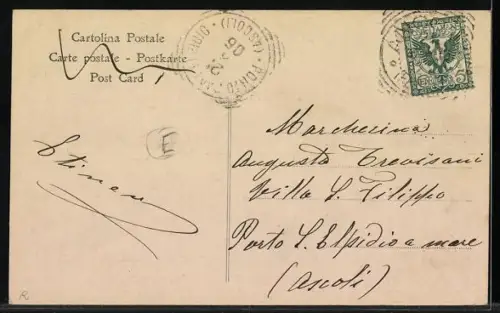 Cartolina Postale
Carte postale - Postkarte
Post Card
(ASCOLI) · PORTO
06
Marchesina
Augusta Trevisani
Villa S. Filippo
Porto S. Elpidio a mare
(Ascoli)
E
R